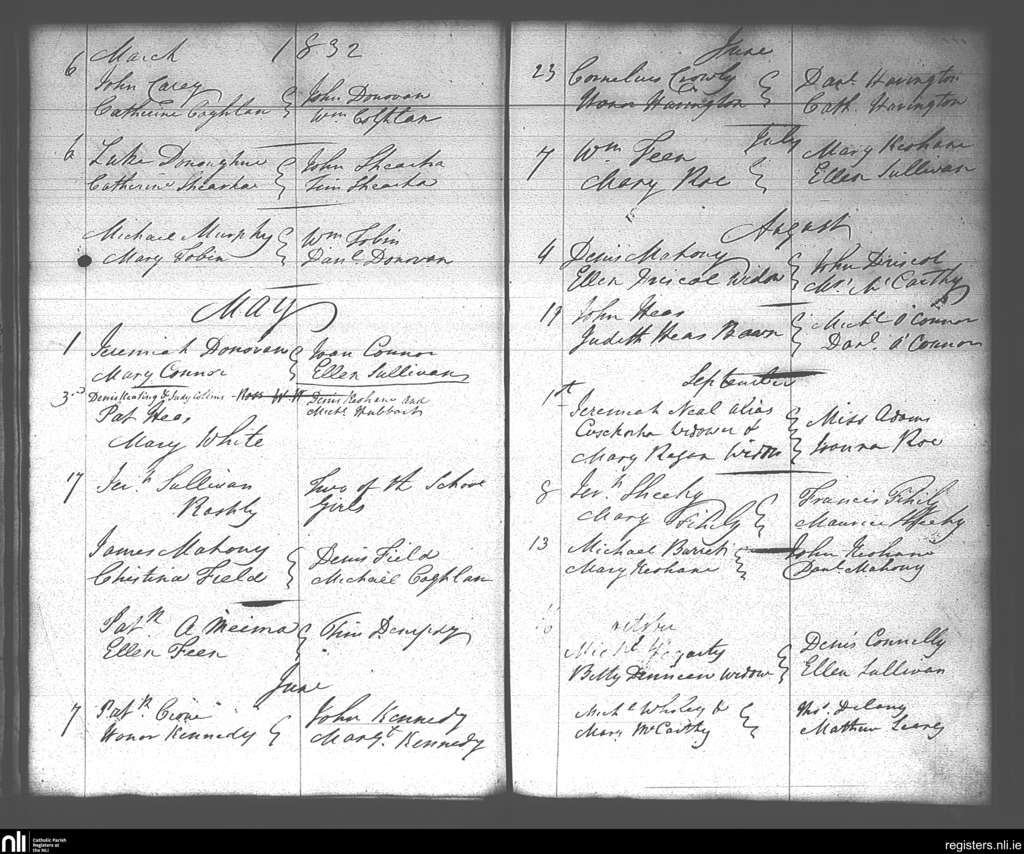 March 1832
6 John Carey
Catherine Coghlan
John Donovan
Wm Coghlan
6 Luke Donoughue
Catherine Sheaha
John Sheaha
Tim Sheaha
Michael Murphy
Mary Tobin
Wm Tobin
Danl. Donovan
May
1 Jeremiah Donovan
Mary Connor
Joan Connor
Ellen Sullivan
3rd Denis Keating & Judy
Denis Keohane and
Michl. Hubbart
Pat Heas
Mary White
17 Jerh. Sullivan
Rashly
Two of the School
Girls
James Mahony
Christina Field
Denis Field
Michael Coghlan
Patk. A
Ellen Feen
Tim Dempsey
June
7 Patk.
Honor Kennedy
John Kennedy
Margt. Kennedy
June
23 Cornelius Crowly
Honor Harrington
Danl Harrington
Cath. Harington
July
7 Wm Feen
Mary Roe
Mary Keohane
Ellen Sullivan
August
4 Denis Mahony
Ellen Driscol widow
John Driscol
Mrs. McCarthy
19 John Heas
Judith Heas Bawn
Michl O'Connor
Danl. O'Connor
September
1st Jeremiah Neal alias
widower &
Mary Regan widow
Miss Adams
Joanna Roe
8 Jerh. Sheehy
Mary Fihily
Francis Fihily
Maurice Sheehy
13 Michael Barrett
Mary Keohane
John Keohane
Danl. Mahony
October
Michl Fogarty
Betty Dunnean widow
Denis Connelly
Ellen Sullivan
Michl Whiley &
Mary McCarthy
Thos. Delany
Matthew Leary
nli
Catholic Parish
Registers at
the NLI
registers.nli.ie